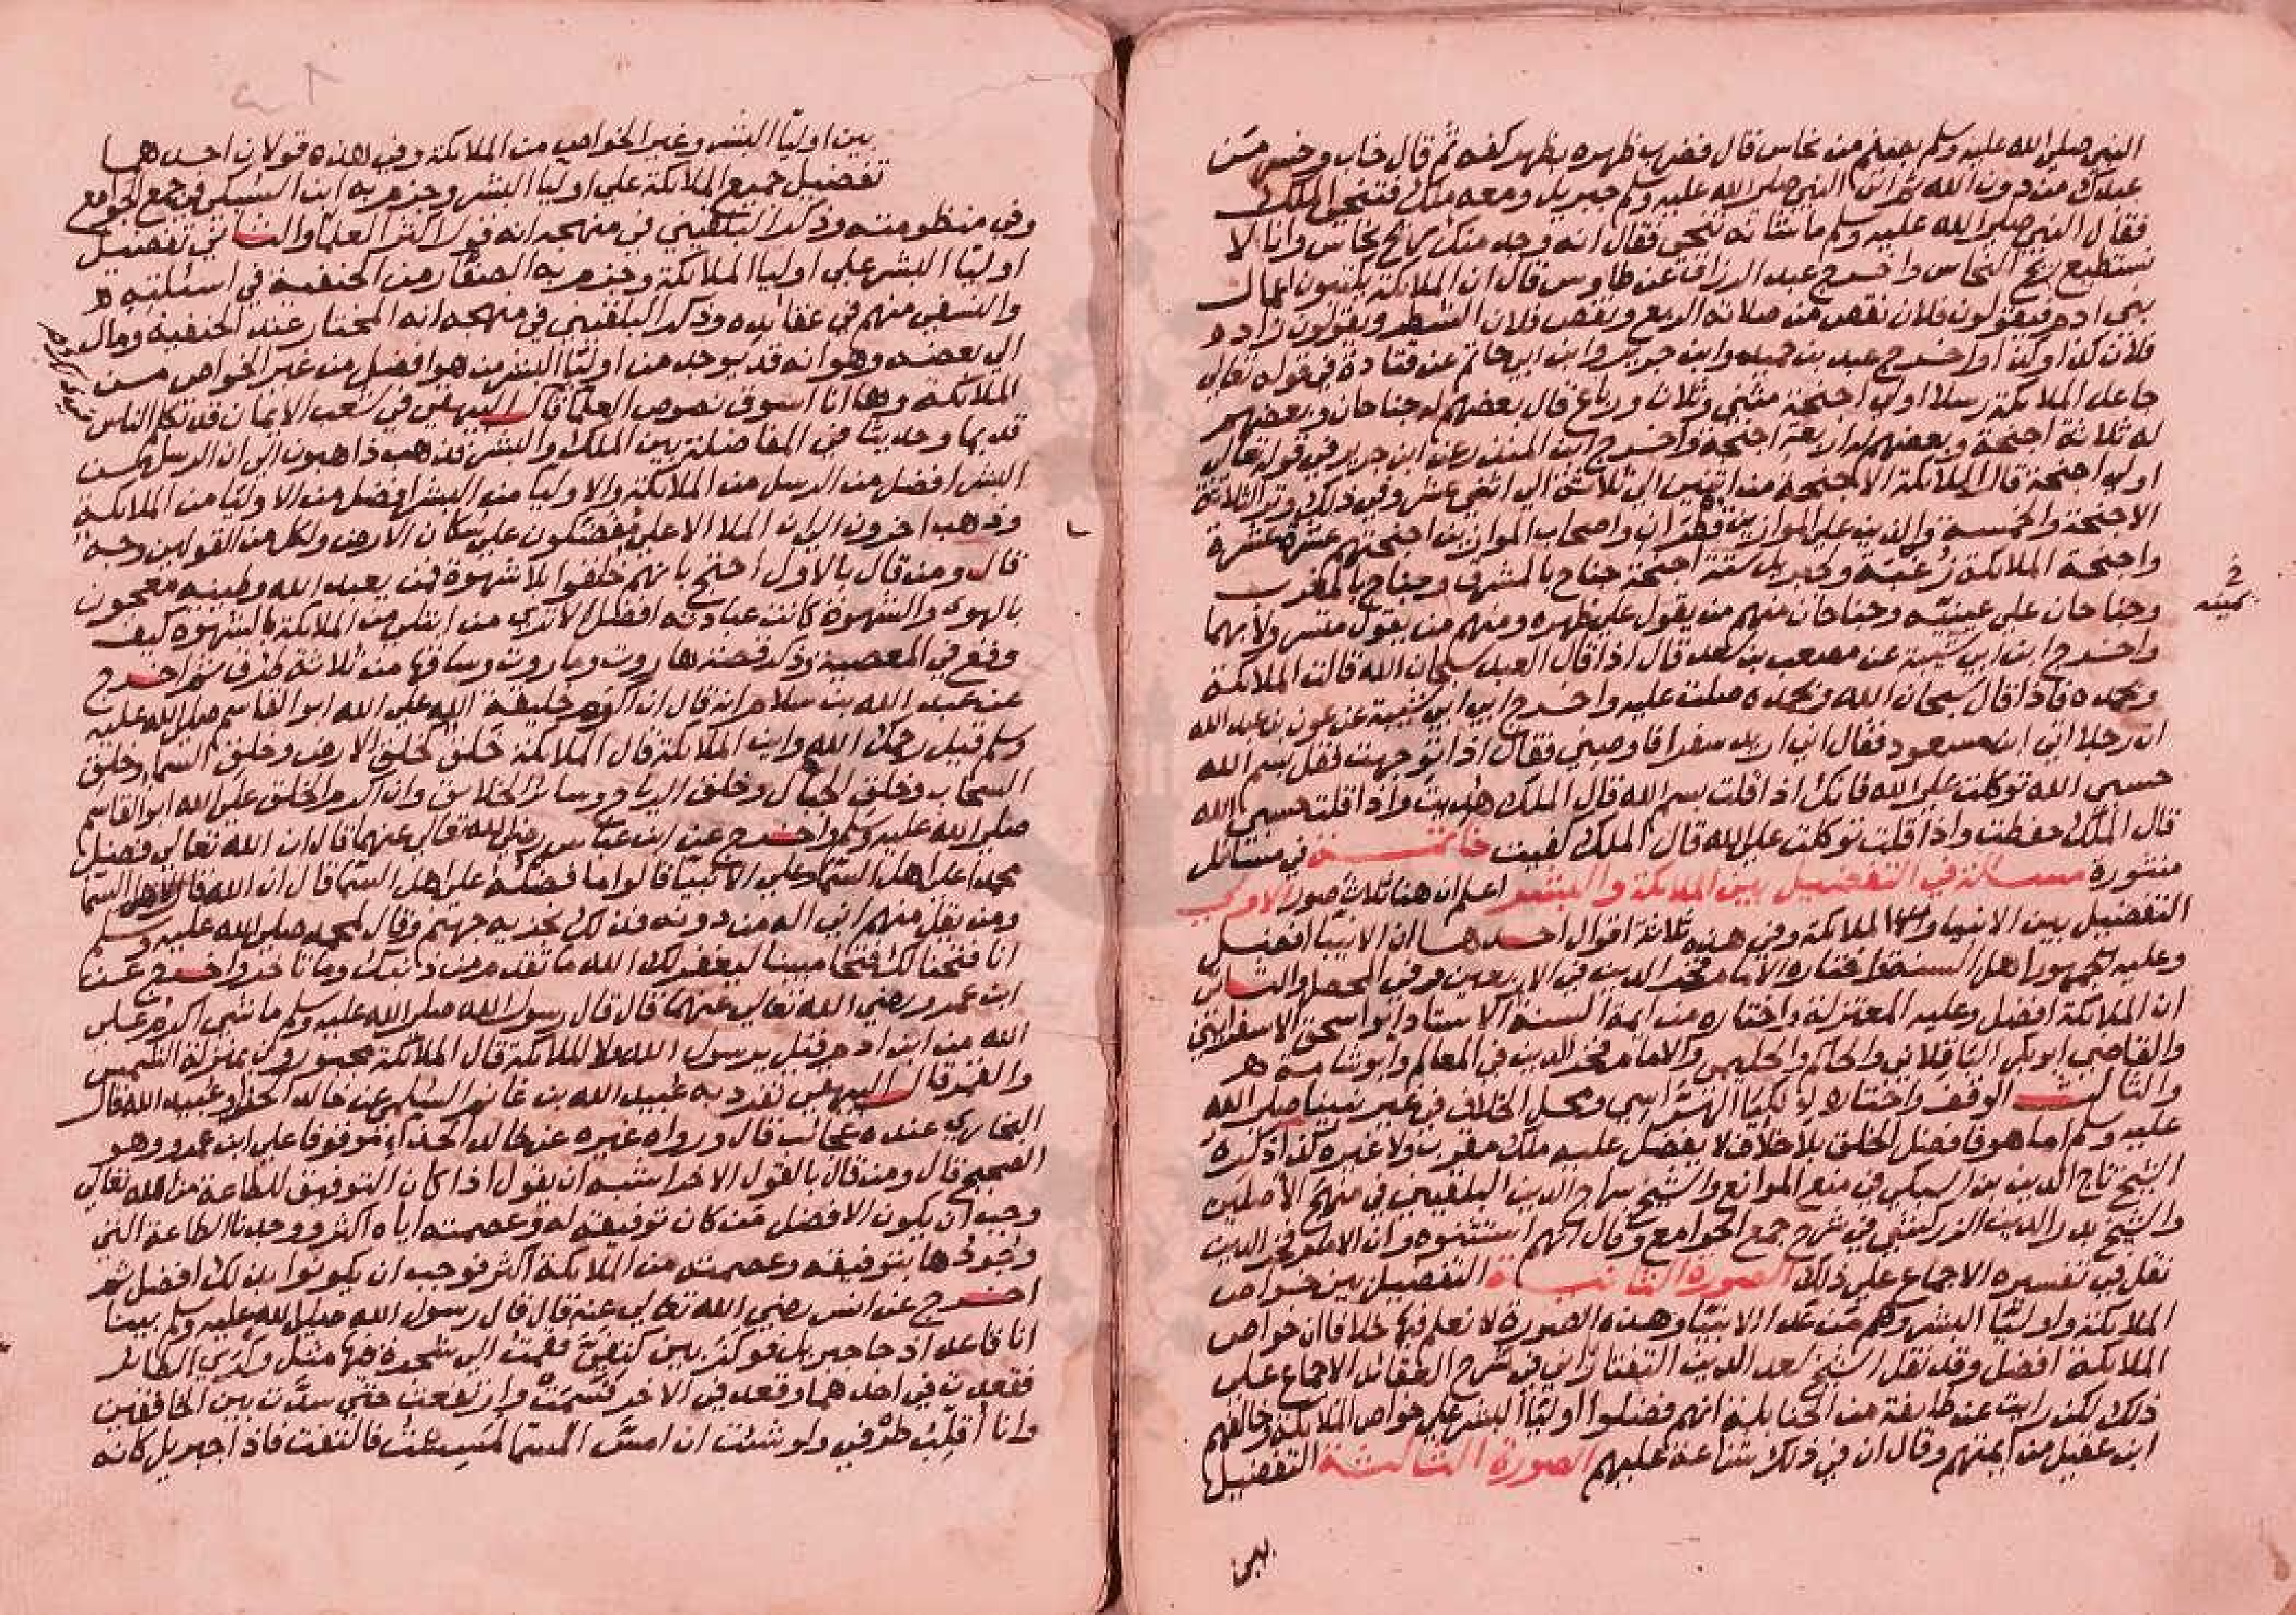 النبي صلى الله عليه وسلم بصنم من نحاس قال فضرب ظهره بظهر كفه ثم قال خاب وخسر من
عبدك من دون الله ثم اتى النبي صلى الله عليه وسلم جبريل ومعه ملك فتنحى الملك
فقال النبي صلى الله عليه وسلم ما شانه تنحى فقال انه وجد منك ريح نحاس وانا لا
نستطيع ريح النحاس واخرج عبد الرزاق عن طاوس قال ان الملائكة يكتبون اعمال
بني ادم فيقولون فلان نقص من صلاته الربع ونقص فلان الشطر ويقولون زاده
فلان كذا وكذا واخرج عبد بن حميد وابن جرير وابن ابي حاتم عن قتادة في قوله تعالى
جاعل الملائكة رسلا اولي اجنحة مثنى وثلاث ورباع قال بعضهم له جناحان وبعضهم
له ثلاثة اجنحة وبعضهم له اربعة اجنحة واخرج ابن المنذر عن ابن جريج في قوله تعالى
اولي اجنحة قال للملائكة الاجنحة من اثنين الى ثلاثة الى اثني عشر وفي ذلك وتر الثلاثة
الاجنحة والخمسة والذين على الموازين فطران واصحاب الموازين اجنحتهم عشرة عشرة
واجنحة الملائكة زغبة ولجبريل ستة اجنحة جناح بالمشرق وجناح بالمغرب
وجناحان على عينيه وجناحان منهم من يقول على ظهره ومنهم من يقول متسرولا بهما
واخرج ابن ابي شيبة عن مصعب بن سعد قال اذا قال العبد سبحان الله قالت الملائكة
وبحمده فاذا قال سبحان الله وبحمده صلت عليه واخرج ابن ابي شيبة عن عون بن عبد الله
ان رجلا اتى ابن مسعود فقال اني اريد سفرا فاوصني فقال اذا توجهت فقل بسم الله
حسبي الله توكلت على الله فانك اذا قلت بسم الله قال الملك هديت واذا قلت حسبي الله
قال الملك حفظت واذا قلت توكلت على الله قال الملك كفيت خاتمة في مسائل
منثورة مسالة في التفضيل بين الملائكة والبشر اعلم ان هنا ثلاث صور الاولى
التفضيل بين الانبيا والملائكة وفي هذه ثلاثة اقوال احدها ان الانبيا افضل
وعليه جمهور اهل السنة واختاره الامام فخر الدين في الاربعين وفي المحصل والثاني
ان الملائكة افضل وعليه المعتزلة واختاره من ايمة السنة الاستاد ابو اسحق الاسفرايني
والقاضي ابو بكر الباقلاني والحاكم والحليمي والامام فخر الدين في المعالم وابو شامة
والثالث الوقف واختاره الكيا الهراسي ومحل الخلاف في غير نبينا صلى الله
عليه وسلم اما هو فافضل الخلق بلا خلاف لا يفضل عليه ملك مقرب ولا غيره كذا ذكره
الشيخ تاج الدين بن السبكي في منع الموانع والشيخ سراج الدين البلقيني في منهج الاصلين
والشيخ بدر الدين الزركشي في شرح جمع الجوامع وقال انهم استثنوه وان الامام فخر الدين
نقل في تفسيره الاجماع على ذلك الصورة الثانية التفضيل بين خواص
الملائكة واوليا البشر وهم من عدا الانبيا وهذه الصورة لا نعلم فيها خلافا ان خواص
الملائكة افضل وقد نقل الشيخ سعد الدين التفتازاني في شرح العقائد الاجماع على
ذلك لكن رايت عن طايفة من الحنابلة انهم فضلوا اوليا البشر على خواص الملائكة وخالفهم
ابن عقيل من ايمتهم وقال ان في ذلك شناعة عليهم الصورة الثالثة التفضيل
بين
بين اوليا البشر وغير الخواص من الملائكة وفي هذه قولان احدهما
تفضيل جميع الملائكة على اوليا البشر وجزم به ابن السبكي في جمع الجوامع
وفي منظومته وذكر البلقيني في منهجه انه قول اكثر العلما والثاني تفضيل
اوليا البشر على اوليا الملائكة وجزم به الصفار من الحنفية في اسئلته
والنسفي منهم في عقائده وذكر البلقيني في منهجه انه المختار عند الحنفية ومال
الى بعضه وهو انه قد يوجد من اوليا البشر من هو افضل من غير الخواص من
الملائكة وها انا اسوق نصوص العلما قال البيهقي في شعب الايمان قد تكلم الناس
قديما وحديثا في المفاضلة بين الملك والبشر فذهب ذاهبون الى ان الرسل من
البشر افضل من الرسل من الملائكة والاوليا من البشر افضل من الاوليا من الملائكة
وذهب اخرون الى ان الملا الاعلى مفضلون على سكان الارض ولكل من القولين وجه
قال ومن قال بالاول احتج بانهم خلقوا بلا شهوة فمن يعبد الله وطينه معجون
بالهوى والشهوة كانت عبادته افضل الا ترى من ابتلي من الملائكة بالشهوة كيف
وقع في المعصية وذكر قصة هاروت وماروت وساقها من ثلاثة طرق ثم اخرج
عن عبد الله بن سلام انه قال ان اكرم خليقة الله على الله ابو القاسم صلى الله عليه
وسلم قيل رحمك الله واين الملائكة قال الملائكة خلق كخلق الارض وخلق السما وخلق
السحاب وخلق الجبال وخلق الرياح وساير الخلايق وان اكرم الخلق على الله ابو القاسم
صلى الله عليه وسلم واخرج عن ابن عباس رضي الله تعالى عنهما قال ان الله تعالى فضل
محمدا على اهل السما وعلى الانبيا قالوا ما فضله على اهل السما قال ان الله قال لاهل السما
ومن يقل منهم اني اله من دونه فذلك نجزيه جهنم وقال لمحمد صلى الله عليه وسلم
انا فتحنا لك فتحا مبينا ليغفر لك الله ما تقدم من ذنبك وما تاخر واخرج عن
ابن عمرو رضي الله تعالى عنهما قال قال رسول الله صلى الله عليه وسلم ما شي اكرم على
الله من ابن ادم قيل يرسول الله ولا الملائكة قال الملائكة مجبورون بمنزلة الشمس
والقمر قال البيهقي تفرد به عبيد الله بن تمام السلمي عن خالد الحذا وعبيد الله قال
البخاري عنده عجائب قال ورواه غيره عن خالد الحذاء موقوفا على ابن عمرو وهو
الصحيح قال ومن قال بالقول الاخر اشبه ان يقول اذا كان التوفيق للطاعة من الله تعالى
وجب ان يكون الافضل من كان توفيقه له وعصمته اياه اكثر ووجدنا الطاعة التي
وجودها بتوفيقه وعصمته من الملائكة اكثر فوجب ان يكونوا بذلك افضل ثم
اخرج عن انس رضي الله تعالى عنه قال قال رسول الله صلى الله عليه وسلم بينا
انا قاعد اذ جا جبريل فوكز بين كتفي فقمت الى شجرة فيها مثل وكري الطائر
فقعدت في احدهما وقعد في الاخر فسمت وارتفعت حتى سدت بين الخافقين
وانا اقلب طرفي ولو شئت ان امس السما لمسست فالتفت فاذا جبريل كانه